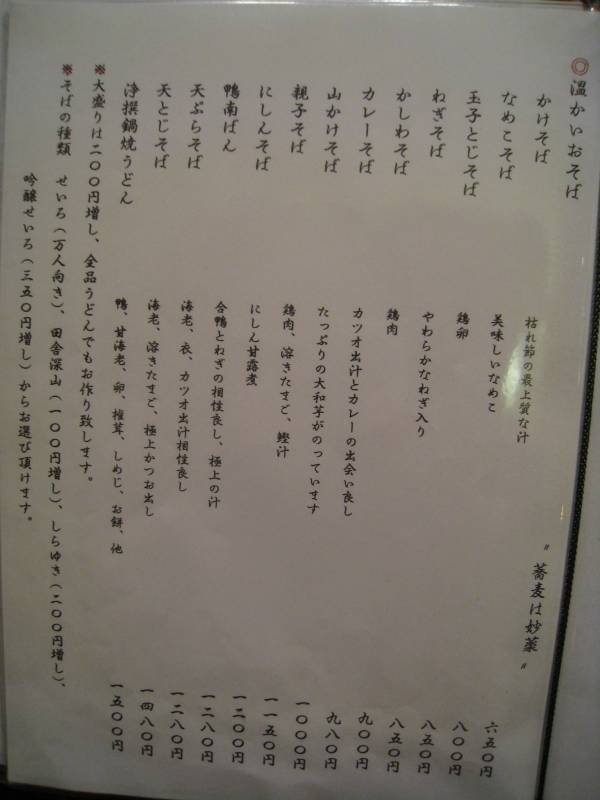 ◎温かいおそば
〝蕎麦は妙薬〟
かけそば 枯れ節の最上質な汁 六五〇円
なめこそば 美味しいなめこ 八〇〇円
玉子とじそば 鶏卵 八五〇円
ねぎそば やわらかなねぎ入り 八五〇円
かしわそば 鶏肉 九〇〇円
カレーそば カツオ出汁とカレーの出会い良し 九八〇円
山かけそば たっぷりの大和芋がのっています 一〇〇〇円
親子そば 鶏肉、溶きたまご、鰹汁 一一五〇円
にしんそば にしん甘露煮 一二〇〇円
鴨南ばん 合鴨とねぎの相性良し、極上の汁 一二八〇円
天ぷらそば 海老、衣、カツオ出汁相性良し 一二八〇円
天とじそば 海老、溶きたまご、極上かつお出し 一四八〇円
浄撰鍋焼うどん 鴨、甘海老、卵、椎茸、しめじ、お餅、他 一五〇〇円
※大盛りは二〇〇円増し、全品うどんでもお作り致します。
※そばの種類 せいろ(万人向き)、田舎深山(一〇〇円増し)、しらゆき(二〇〇円増し)、
吟醸せいろ(三五〇円増し)からお選び頂けます。